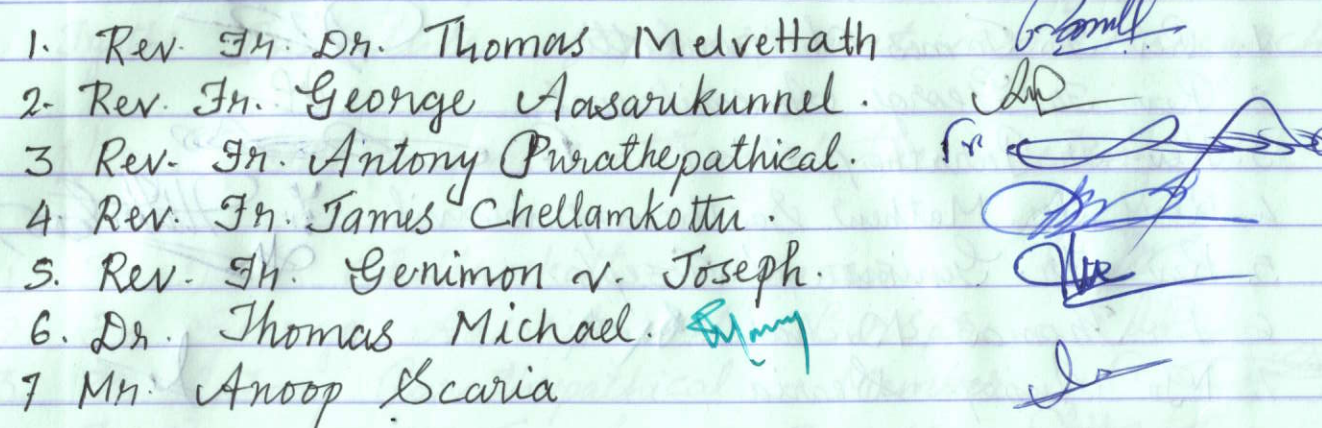 1. Rev. Fr. Dr. Thomas Melvettath
2- Rev. Fr. George Aasarikunnel.
3 Rev- Fr. Antony Purathepathical. Fr.
4. Rev. Fr. James Chellamkottu.
5. Rev. Fr. Genimon V. Joseph.
6. Dr. Thomas Michael.
7 Mr. Anoop Scaria